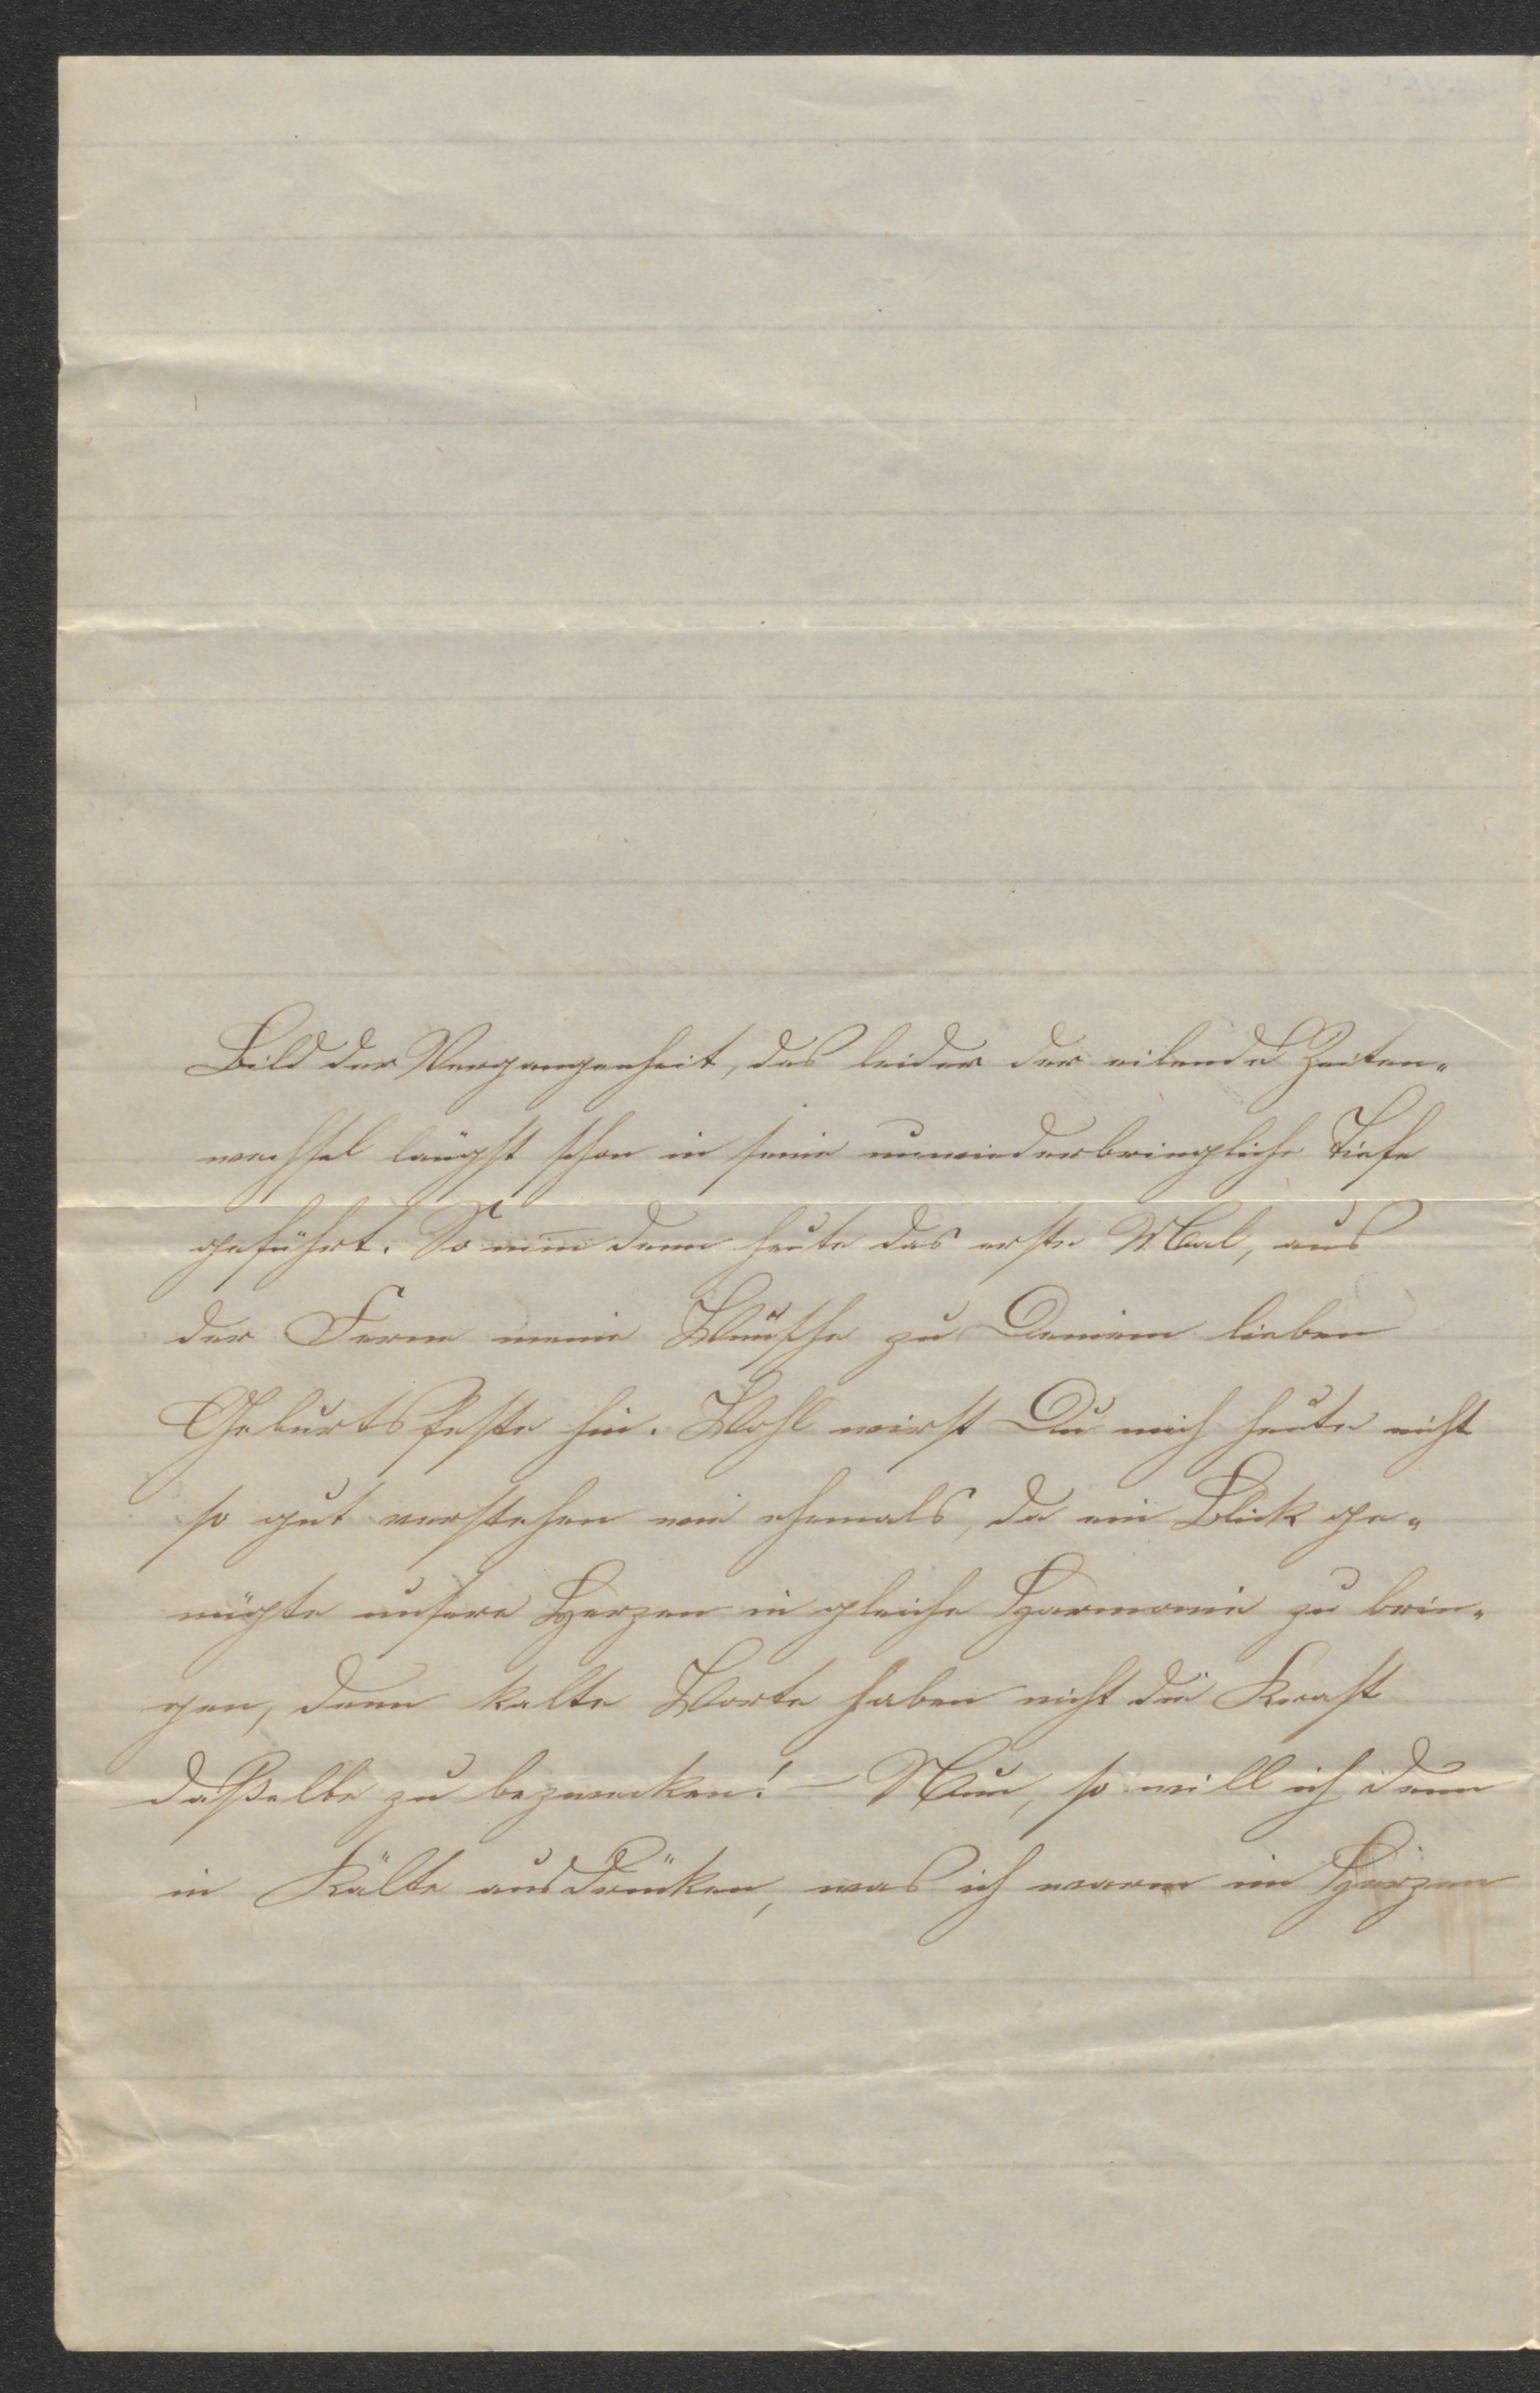 Bild der Vergangenheit, das leider der eilende Zeiten-
wechsel längst schon in seine unwiederbringliche Tiefe
geführt. So nim̅ denn heute das erste Mal, aus
der Ferne meine Wünsche zu Deinem lieben
Geburtsfeste hin. Wohl wirst Du mich heute nicht
so gut verstehen wie ehemals, da ein Blick ge-
nügte unsere Herzen in gleiche Harmonie zu brin-
gen, denn kalte Worte haben nicht die Kraft
daßelbe zu bezwecken! – Nun, so will ich denn
in Kälte ausdrüken, was ich warm im Herzen